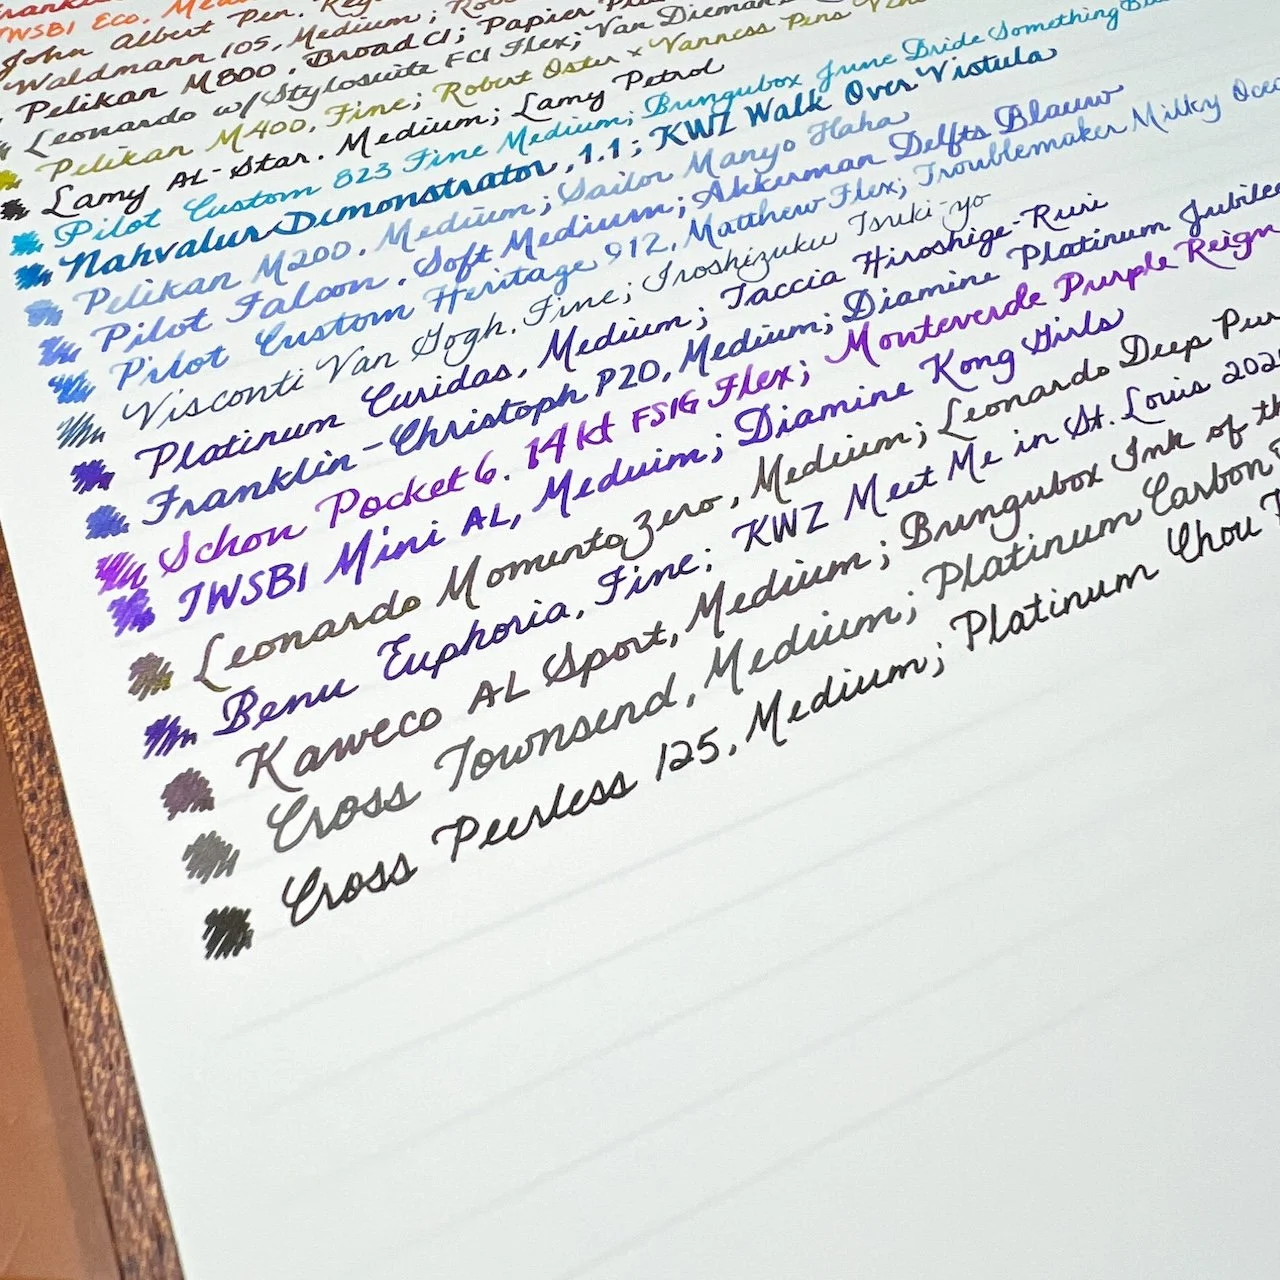 TWSBI Eco. Me
John Albert Pen. Reg
Waldmann 105, Medium; Ro
Pelikan M800, Broad CI; Papier
Leonardo w/Stylosuite EF Flex; Van Dieman
Pelikan M400, Fine; Robert Oster x Vanness Pens
Lamy AL-Star. Medium; Lamy Petrol
Pilot Custom 823 Fine Medium; Bungubox June Bride Something Blu
Nahvalur Demonstrator, 1.1; KWZ Walk Over Vistula
Pelikan M200, Medium; Sailor Manyo Haha
Pilot Falcon, Soft Medium; Akkerman Delfts Blauw
Pilot Custom Heritage 912, Matthew Flex; Troublemaker Milky Oce
Visconti Van Gogh. Fine; Iroshizuku Tsuki-yo
Platinum Curidas, Medium; Taccia Hiroshige-Ruri
Franklin-Christoph P20, Medium; Diamine Platinum Jubilee
Schon Pocket 6. 14kt FSIG Flex; Monteverde Purple Reign
TWSBI Mini AL, Meduim; Diamine Kong Girls
Leonardo Momento Zero, Medium; Leonardo Deep Pur
Benu Euphoria, Fine; KWZ Meet Me in St. Louis 202
Kaweco AL Sport, Medium; Bungubox Ink of th
Cross Townsend, Medium; Platinum Carbon
Cross Peerless 125, Medium; Platinum Chou